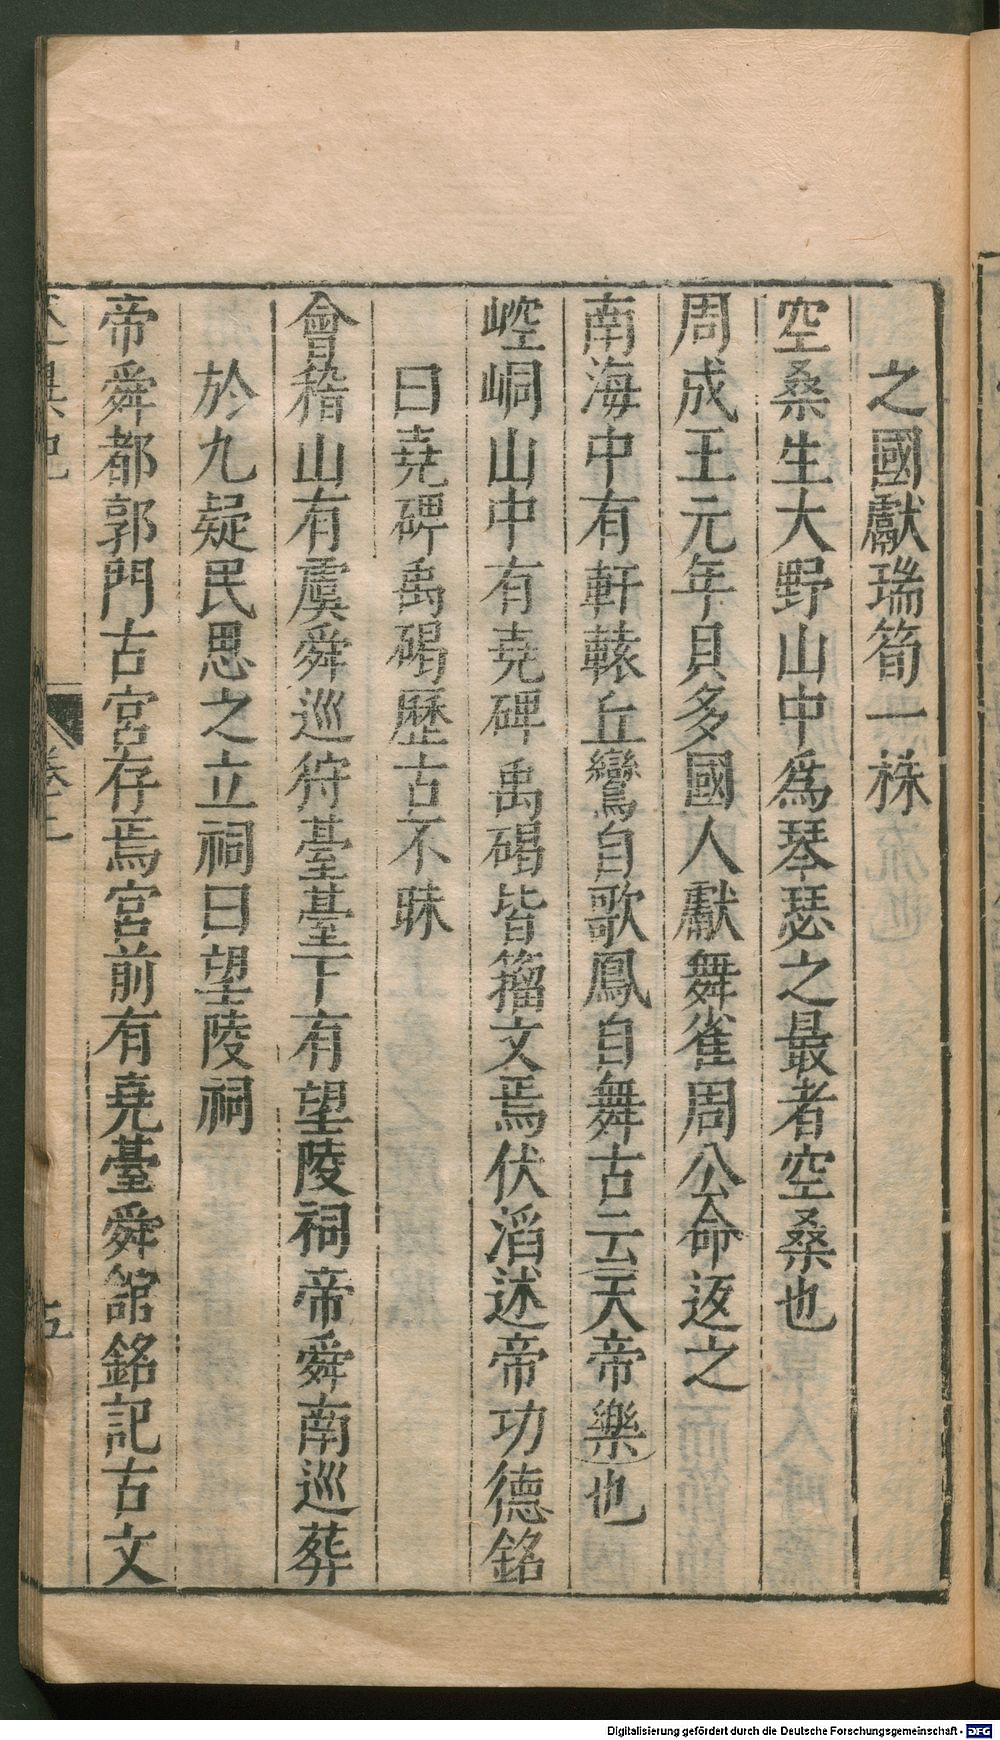 之國獻瑞筍一株
空桑生大野山中爲琴瑟之最者空桑也
周成王元年貝多國人獻舞雀周公命返之
南海中有軒轅丘鸞自歌鳳自舞古云天帝樂也
崆峒山中有堯碑禹碣皆籀文焉伏滔述帝功德銘
曰堯碑禹碣歷古不昧
會稽山有虞舜巡狩臺臺下有望陵祠帝舜南巡葬
於九疑民思之立祠曰望陵祠
帝舜都郭門古宮存焉宮前有堯臺舜館銘記古文
述異記 卷上 五
Digitalisierung gefördert durch die Deutsche Forschungsgemeinschaft - DFG